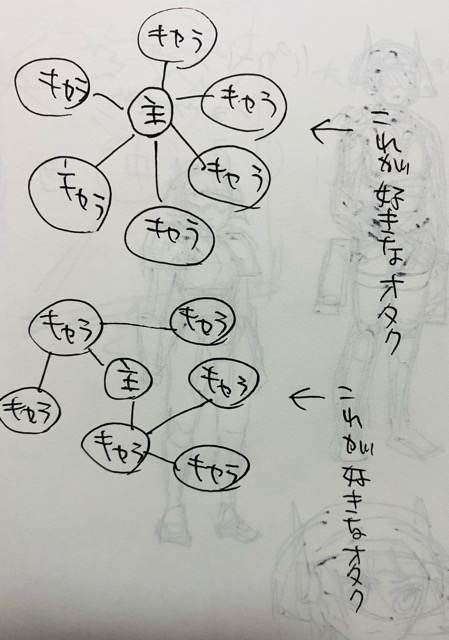 キャラ
キャラ
キャラ
主
キャラ
キャラ
キャラ
← これが好きなオタク
キャラ
キャラ
主
キャラ
キャラ
キャラ
キャラ
← これが好きなオタク